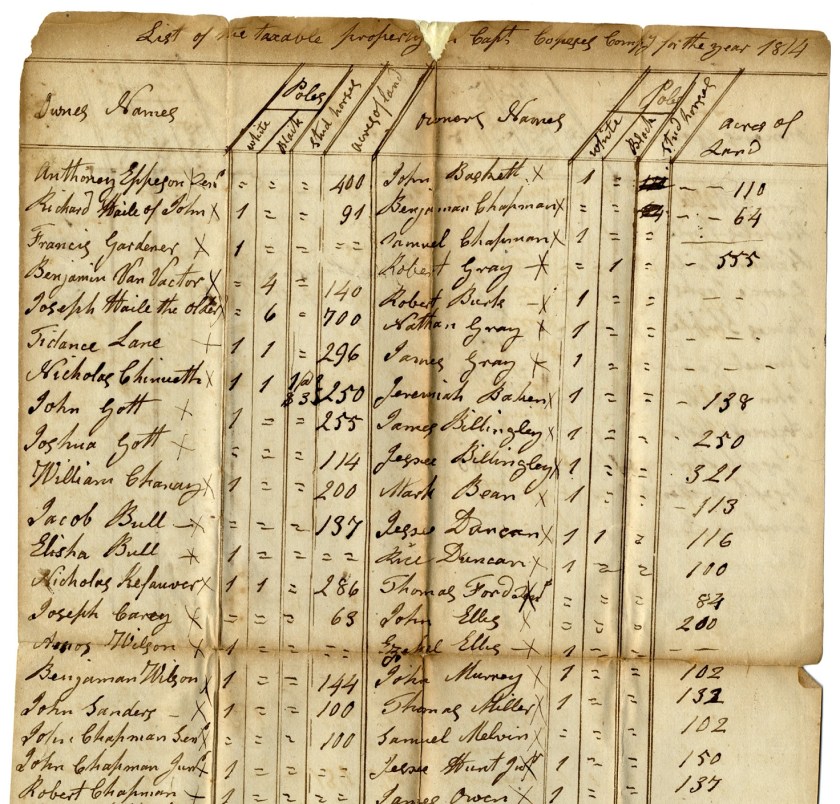 List of the taxable property in Capt Coneses Compy for the year 1814
Owners Names Poles white Black Stud horses acres of land
Anthoney Eppeson Senr = = = 400
Richard Haile of John X 1 = = 91
Francis Gardener X 1 = = = =
Benjamin Van Vactor X = 4 = 140
Joseph Haile the older = 6 = 700
Tidance Lane X 1 1 = 296
Nicholas Chinueth X 1 1 1 @ $3 250
John Gott X 1 = = 255
Joshua Gott X = = = 114
William Chanay X 1 = = 200
Jacob Bull X = = = 137
Elisha Bull X 1 = = = =
Nicholas Kefauver X 1 1 = 286
Joseph Carey X = = = 63
Amos Wilson X 1 = = = =
Benjaman Wilson X 1 = = 144
John Sanders X 1 = = 100
John Chapman Senr = = = 100
John Chapman Junr X 1 = = = =
Robert Chapman X 1
Owners Names Poles white Black Stud horses acres of Land
John Baskett X 1 = - - 110
Benjaman Chapman X = = - - 64
Samuel Chapman X 1 = =
Robert Gray X = 1 = - 555
Robert Burk X 1 = = - -
Nathan Gray X 1 = =
James Gray X 1 = = - - -
Jeremiah Baken X 1 = = - 138
James Billingley X 1 = = - 250
Jessee Billingley X 1 = = 321
Mark Bean X 1 = = - 113
Jessee Duncan X 1 1 = 116
Rice Duncan X 1 = = 100
Thomas Ford X = = = 84
John Ellis X = = = 200
Ezekel Ellis X 1 = =
John Murrey X 1 = = 102
Thomas Miller X 1 = = 132
Samuel Melvin X = = = 102
Jessee Hunt Junr X 1 = = 150
James Owen X 1 = = 137